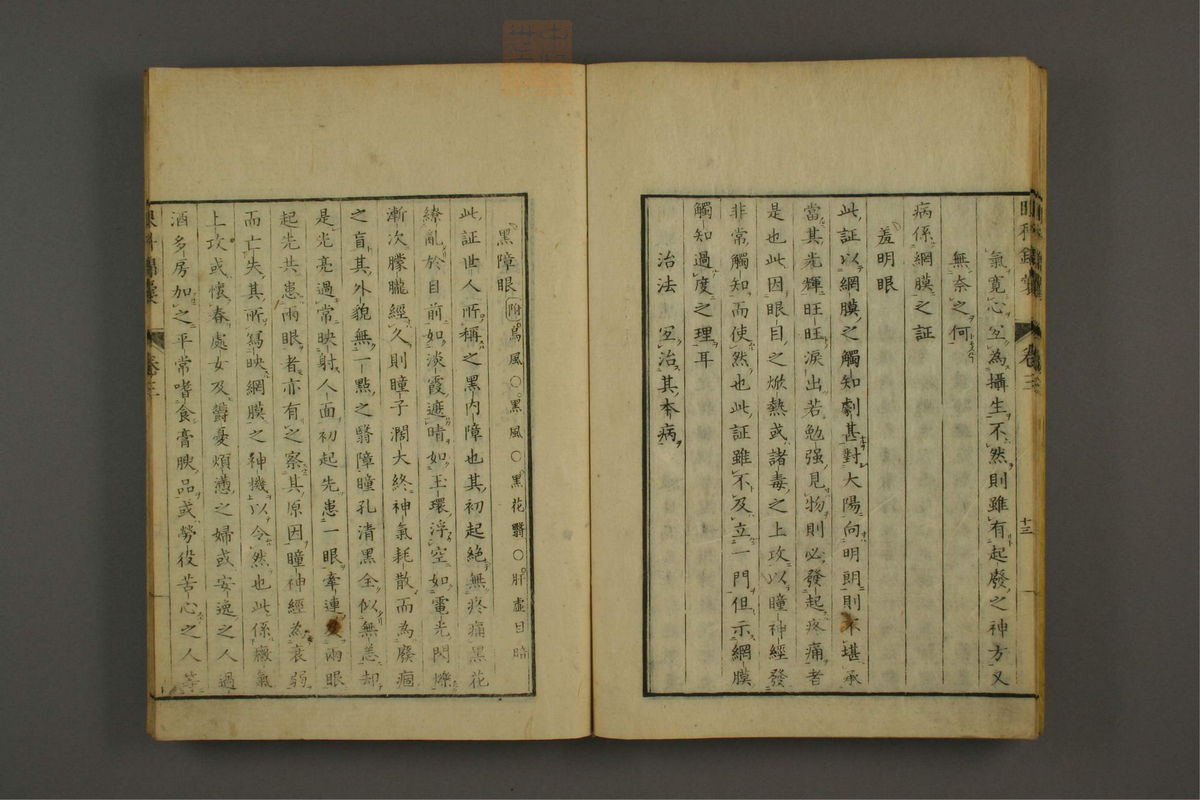 氣寬心冝為攝生不然則雖有起廢之神方又
無奈之何
病係網膜之証
羞明眼
此証以網膜之觸知劇甚對大陽向明朗則不堪承
當其光輝旺旺淚出若勉强見物則必發起疼痛者
是也此因眼目之焮熱或諸毒之上攻以瞳神經發
非常觸知而使然也此証雖不及立一門但示網膜
觸知過度之理耳
治法 冝治其本病
卷三
十三
黑障眼 附烏風○黑風○黑花翳○肝虛目暗
此証世人所稱之黑内障也其初起絶無疼痛黑花
繚亂於目前如淡霞遮晴如玉環浮空如電光閃爍
漸次朦朧經久則瞳子濶大終神氣耗散而為廢痼
之盲其外貌無一點之翳障瞳孔清黑全似無恙却
是光亮過常映射人面初起先患一眼牽連及兩眼
起先共患兩眼者亦有之察其原因瞳神經為衰弱
而亡失其所寫映網膜之神機以令然也此係癥氣
上攻或懷春處女及欝憂煩懣之婦或安逸之人過
酒多房加之平常嗜食膏腴品或勞役苦心之人等
卷三